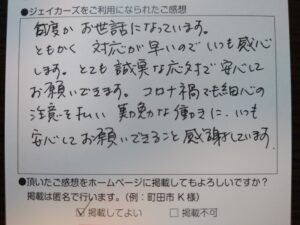 ●ジェイカーズをご利用になられたご感想
毎度か お世話になっています。
ともかく 対応が早いので いつも感心
します。とても誠実な応対で安心して
お願いできます。コロナ禍でも細心の
注意を払い 勤勉な働きに、いつも
安心してお願いできること 感謝しています。
●頂いたご感想をホームページに掲載してもよろしいですか？
掲載は匿名で行います。（例：町田市 K 様）
☑ 掲載してよい　□ 掲載不可